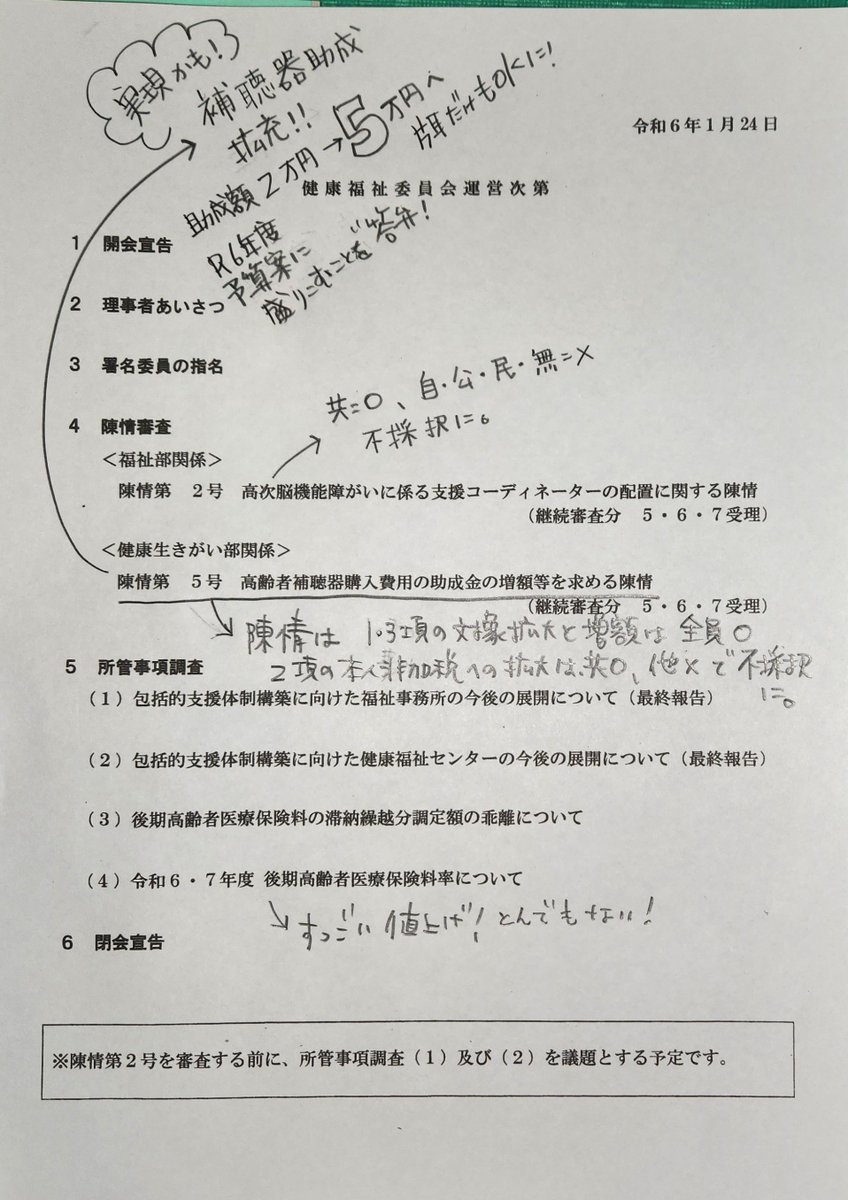 実現かも!
補聴器助成
拡充!!
助成額2万円→5万円へ
片耳だけもOKに!
R6年度
予算案に
盛りこすことを答弁!
令和6年1月24日
健康福祉委員会運営次第
1 開会宣告
2 理事者あいさつ
3 署名委員の指名
共=○、自・公・民・無=×
不採択に。
4 陳情審査
＜福祉部関係＞
陳情第 2号 高次脳機能障がいに係る支援コーディネーターの配置に関する陳情
（継続審査分 5・6・7受理）
＜健康生きがい部関係＞
陳情第 5号 高齢者補聴器購入費用の助成金の増額等を求める陳情
（継続審査分 5・6・7受理）
陳情は 1・3項の対象拡大と増額は 全員○
2項の本人非加税への拡大は、共○、他×で不採択に。
5 所管事項調査
（1）包括的支援体制構築に向けた福祉事務所の今後の展開について（最終報告）
（2）包括的支援体制構築に向けた健康福祉センターの今後の展開について（最終報告）
（3）後期高齢者医療保険料の滞納繰越分調定額の乖離について
（4）令和6・7年度 後期高齢者医療保険料率について
すっごい値上げ!とんでもない!
6 閉会宣告
※陳情第2号を審査する前に、所管事項調査（1）及び（2）を議題とする予定です。